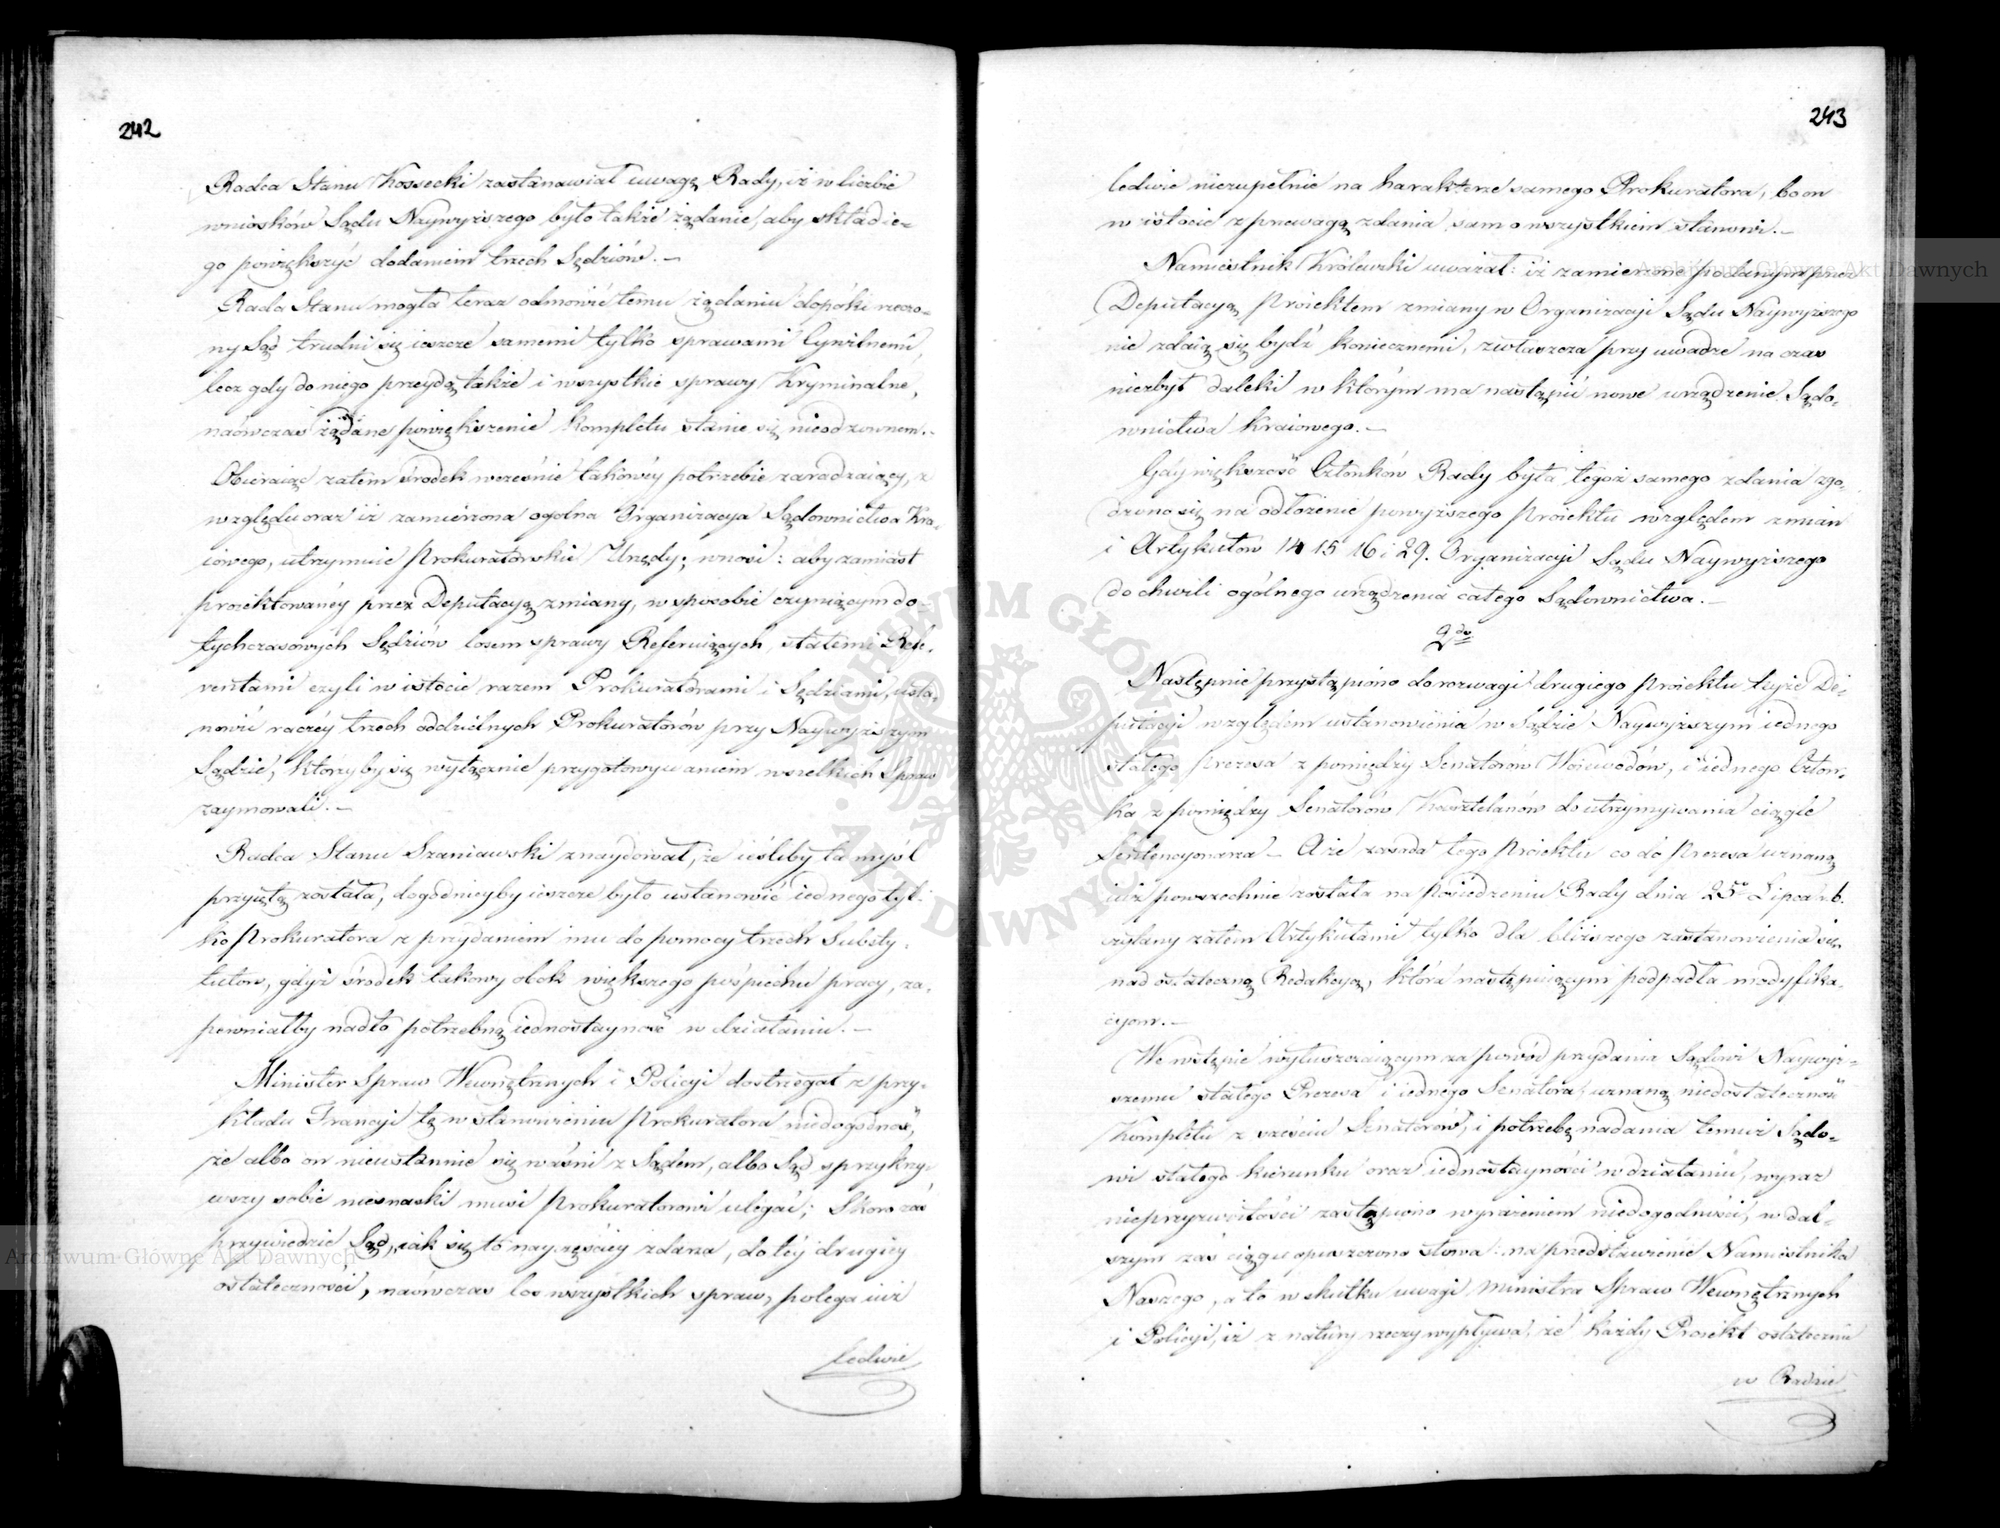 242
Radca Stanu Kossecki zastanawiał uwagę Rady, iż w liczbie
wniosków Sądu Naywyższego było także żądanie, aby skład ie-
go powiększyć dodaniem trzech Sędziów. —
Rada Stanu mogła teraz odmówić temu żądaniu dopóki rzeczo-
ny Sąd trudni się ieszcze samemi tylko sprawami Cywilnemi,
lecz gdy do niego przeydą także i wszystkie sprawy Kryminalne,
naówczas żądane powiększenie Kompletu stanie się nieodzownem. -
Obieraiąc zatem środek wcześnie takowéy potrzebie zaradzaiący, z
względu oraz iż zamierzona ogólna Organizacya Sądownictwa Kra-
iowego, utrzymuie Prokuratorskie Urzędy; wnosi: aby zamiast
proiektowanéy przez Deputacyą zmiany, w sposobie czyniącym do-
tychczasowych Sędziów losem sprawy Referuiących, stałemi Refe-
rentami czyli w istocie razem Prokuratorami i Sędziami, usta-
nowić raczéy trzech oddzielnych Prokuratorów przy Naywyższym
Sądzie, którzyby się wyłącznie przygotowywaniem wszelkich Spraw
zaymowali. —
Radca Stanu Szaniawski znaydował, że ieśliby ta myśl
przyiętą została, dogodnieyby ieszcze było ustanowić iednego tyl-
ko Prokuratora z przydaniem mu do pomocy trzech Substy-
tutów, gdyż środek takowy obok większego pośpiechu pracy, za-
pewniałby nadto potrzebną iednostayność w działaniu. —
Minister Spraw Wewnętrznych i Policyi dostrzegał z przy-
kładu Francyi tę w stanowieniu Prokuratora niedogodność,
że albo on nieustannie się waśni z Sądem, albo Sąd sprzykrzy-
wszy sobie niesnaski musi Prokuratorowi ulegać; Skoro zaś
przywiedzie Sąd, iak się to nayczęściéy zdarza, do téy drugiéy
ostateczności, naówczas los wszystkich spraw, polega iuż
ledwie
243
ledwie niezupełnie na harakterze samego Prokuratora, bo on
w istocie z przewagą zdania samowszystkiem stanowi. —
Namiestnik Królewski uważał: iż zamierzone podanym przez
Deputacyą Proiektem zmiany w Organizacyi Sądu Naywyższego
nie zdaią się bydź koniecznemi, zwłaszcza przy uwadze na czas
niezbyt daleki w którym ma nastąpić nowe urządzenie Sądo-
wnictwa Kraiowego. —
Gdy większość Członków Rady była tegoż samego zdania zgo-
dzono się na odłożenie powyższego Proiektu względem zmian
i Artykułów 14 15 16 i 29. Organizacyi Sądu Naywyższego
do chwili ogólnego urządzenia całego Sądownictwa. —
2do
Następnie przystąpiono do rozwagi drugiego Proiektu teyże De-
putacyi względem ustanowienia w Sądzie Naywyższym iednego
stałego Prezesa z pomiędzy Senatorów Woiewodów, i iednego Człon-
ka z pomiędzy Senatorów Kasztelanów do utrzymywania ciągle
Sentencyonarza — A że zasada tego Proiektu co do Prezesa uznaną
iuż powszechnie została na Posiedzeniu Rady dnia 25º Lipca r.b.
czytany zatem Artykułami tylko dla bliższego zastanowienia się
nad ostateczną Redakcyą, która następuiącym podpadła modyfika-
cyom. —
We wstępie wyłuszczaiącym za powód przydania Sądowi Naywyż-
szemu stałego Prezesa i iednego Senatora, uznaną niedostateczność
Kompletu z sześciu Senatorów, i potrzebę nadania temuż Sądo-
wi stałego kierunku oraz iednostayności w działaniu, wyraz
nieprzyzwoitości zastąpiono wyrażeniem niedogodności, w dal-
szym zaś ciągu opuszczono słowa: na przedstawienie Namiestnika
Naszego, a to w skutku uwagi Ministra Spraw Wewnętrznych
i Policyi, iż z natury rzeczy wypływa, że każdy Proiekt ostatecznie
w Radzie
ARCHIWUM GŁÓWNE AKT DAWNYCH
Archiwum Główne Akt Dawnych
Archiwum Główne Akt Dawnych